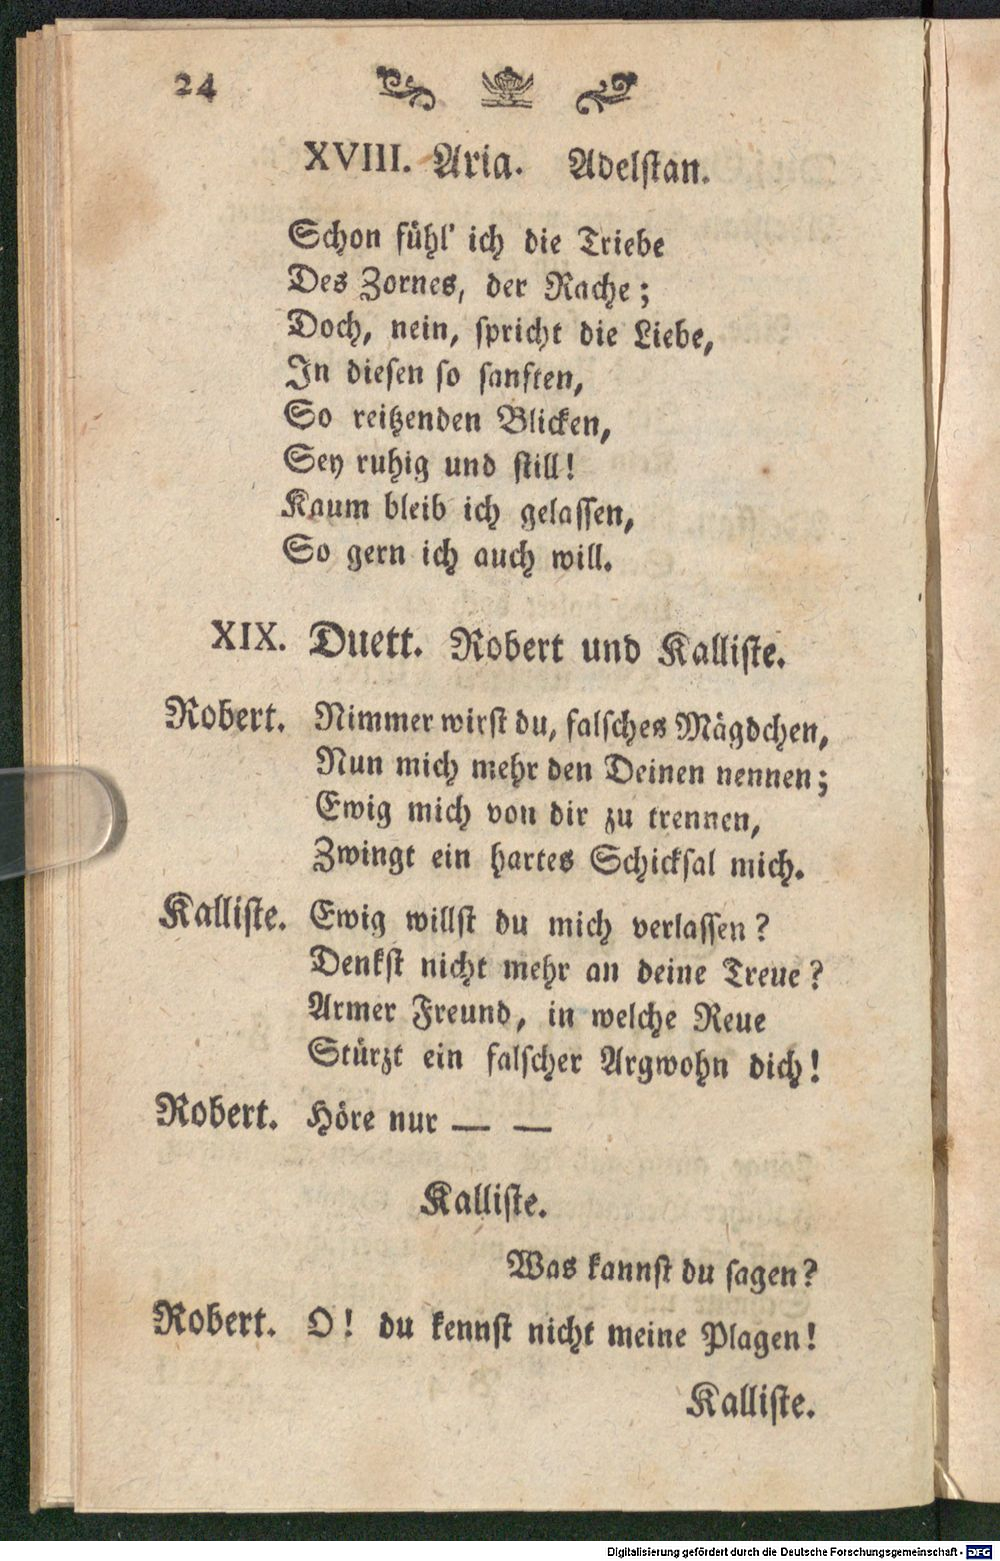 24
XVIII. Aria. Adelstan.
Schon fühl' ich die Triebe
Des Zornes, der Rache;
Doch, nein, spricht die Liebe,
In diesen so sanften,
So reitzenden Blicken,
Sey ruhig und still!
Kaum bleib ich gelassen,
So gern ich auch will.
XIX. Duett. Robert und Kalliste.
Robert. Nimmer wirst du, falsches Mägdchen,
Nun mich mehr den Deinen nennen;
Ewig mich von dir zu trennen,
Zwingt ein hartes Schicksal mich.
Kalliste. Ewig willst du mich verlassen?
Denkst nicht mehr an deine Treue?
Armer Freund, in welche Reue
Stürzt ein falscher Argwohn dich!
Robert. Höre nur — —
Kalliste.
Was kannst du sagen?
Robert. O! du kennst nicht meine Plagen!
Kalliste.
Digitalisierung gefördert durch die Deutsche Forschungsgemeinschaft - DFG